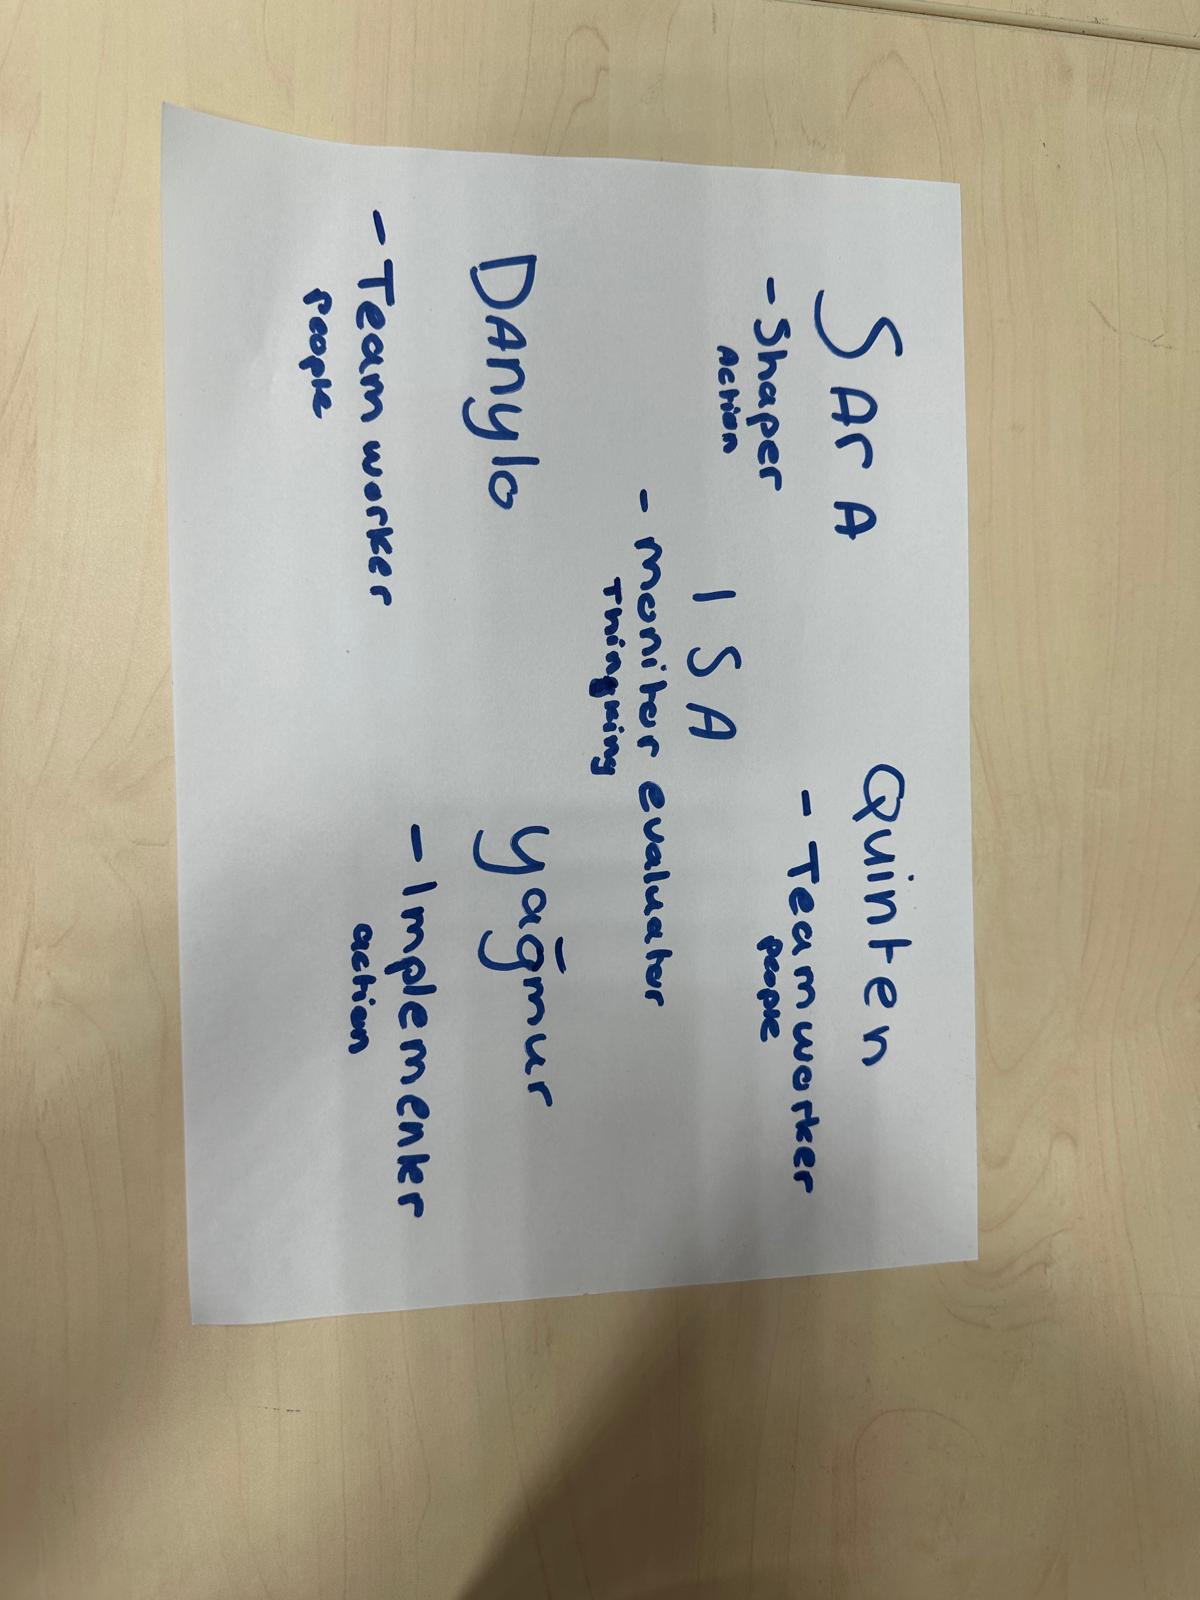 SArA
- Shaper
Action
Quinten
- Teamworker
people
ISA
- monitor evaluator
Thingking
DAnylo
- Team worker
people
Yağmur
- Implementer
action